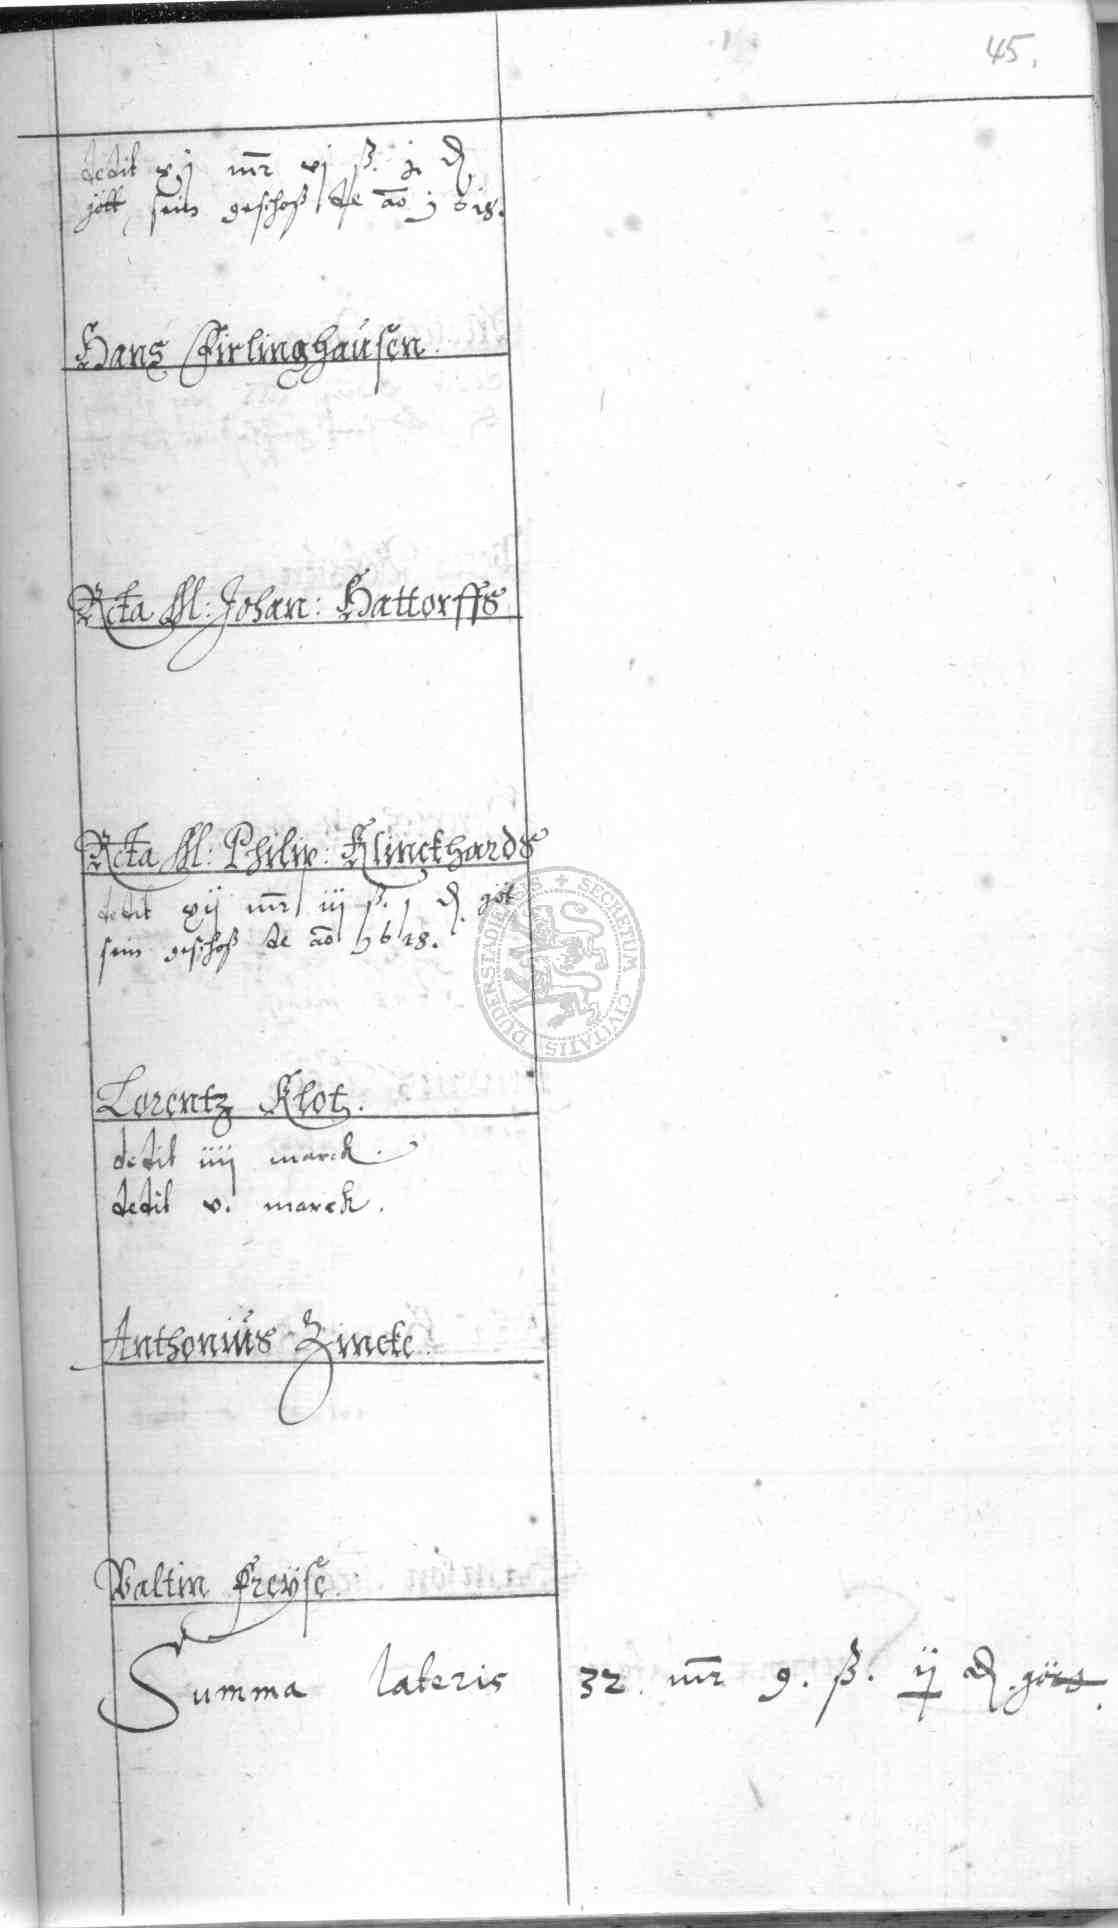 45.
dedit xij mr vj ß. j d
gött sein geschoß de ao 1618.
Hans Firlinghausen.
Rcta M: Johan: Hattorffs
Rcta M: Philip: Klinckhards
dedit xij mr iij ß. j d. göt
sein geschoß de ao 1618.
Lorentz Klot.
dedit iiij marck.
dedit v. marck.
Anthonius Zincke.
Valtin Freÿse.
Summa lateris 32. mr 9. ß. ij d. göt
SECRETUM CIVITATIS DUDERSTADIENSIS